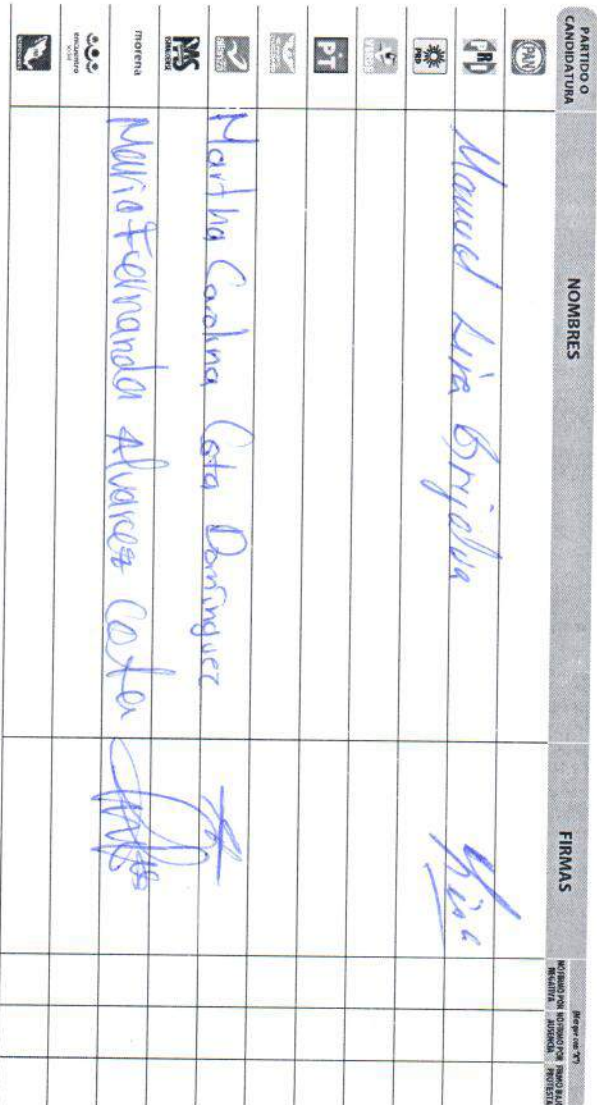 PARTIDO O
CANDIDATURA
NOMBRES
FIRMAS
(Marque con "X")
NO FIRMÓ POR
NEGATIVA
NO FIRMÓ POR
AUSENCIA
FIRMÓ BAJO
PROTESTA
PAN
PRI
Manuel Lira Grijalva
Lira
PRD
VERDE
PT
Martha Carolina Cota Dominguez
PAS
morena
Maria Fernanda Alvarez Cota
encuentro
social